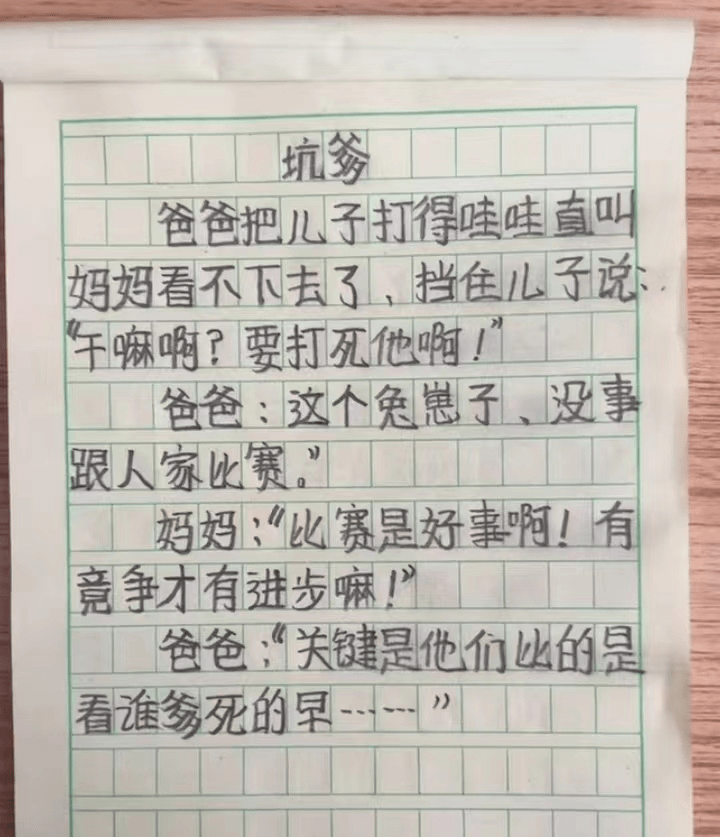 坑爹
爸爸把儿子打得哇哇直叫
妈妈看不下去了、挡住儿子说:
“干嘛啊?要打死他啊!”
爸爸:这个兔崽子、没事
跟人家比赛。”
妈妈:“比赛是好事啊!有
竟争才有进步嘛!”
爸爸:“关键是他们比的是
看谁爹死的早……”